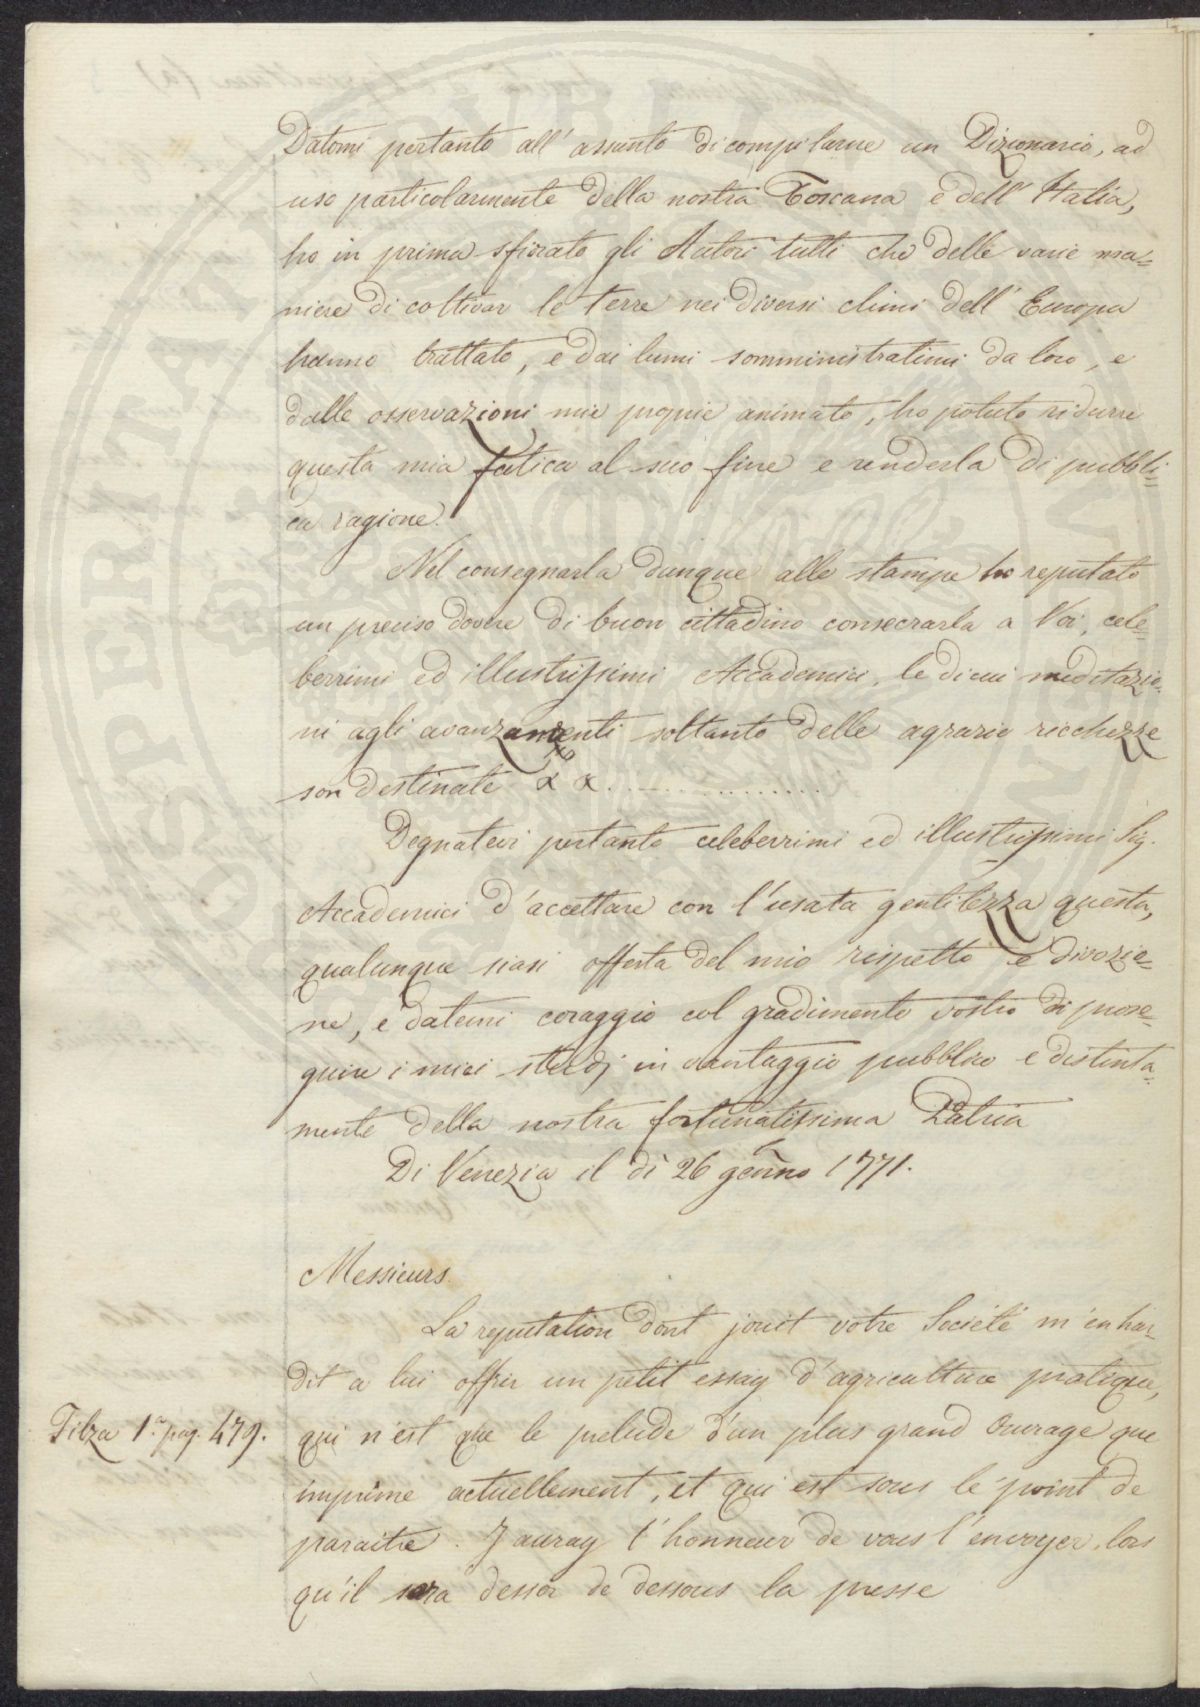 Datomi pertanto all' assunto di compilarne un Dizionario, ad
uso particolarmente della nostra Toscana e dell' Italia,
ho in prima sfiorato gli Autori tutti che delle varie ma=
niere di coltivar le terre nei diversi climi dell' Europa
hanno trattato, e dai lumi somministratimi da loro, e
dalle osservazioni mie proprie animato, ho potuto ridurre
questa mia fatica al suo fine e renderla di pubbli=
ca ragione.
Nel consegnarla dunque alle stampe ho reputato
un preciso dovere di buon cittadino consecrarla a Voi, cele=
berrimi ed illustrissimi Accademici, le di cui meditazio=
ni agli avanzamenti soltanto delle agrarie ricchezze
son destinate x x ...............
Degnatevi pertanto celeberrimi ed illustrissimi Sig.
Accademici d'accettare con l'usata gentilezza questa,
qualunque siasi offerta del mio rispetto e divozio=
ne, e datemi coraggio col gradimento vostro di prose=
guire i miei studj in vantaggio pubblico e distinta=
mente della nostra fortunatissima Patria
Di Venezia il dì 26 genno 1771.
Messieurs.
La reputation dont jouit votre Societé m'enhar=
dit a lui offrir un petit essay d'agriculture pratique,
Filza 1.a pag. 479.
qui n'est que le prelude d'un plus grand Ouvrage que
imprime actuellement, et qui est sous le point de
paraitre. J auray l'honneur de vous l'envoyer, lors
qu'il sera dessor de dessous la presse